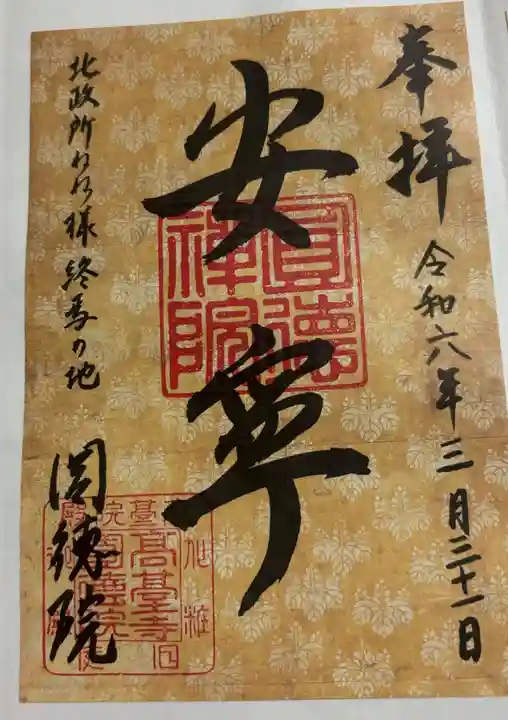 奉拝 令和六年三月三十一日
安寧
圓徳禅院
北政所ねね様終焉の地
圓徳院
高臺寺